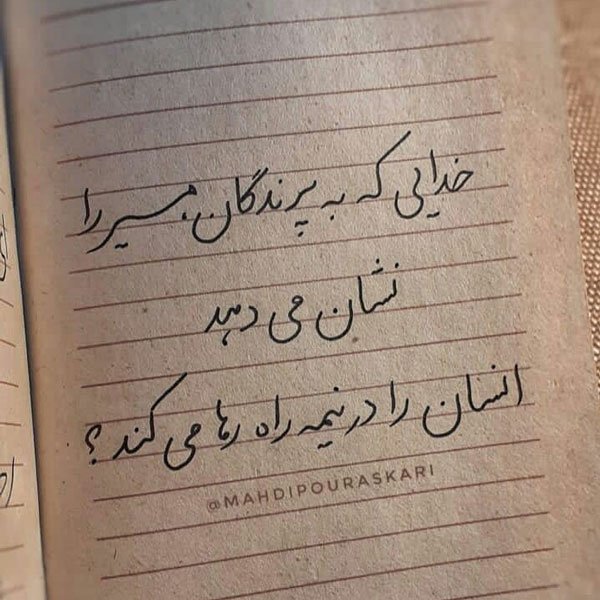 خدایی که به پرندگان مسیر را
نشان می دهد
انسان را در نیمه راه رها می کند؟
@MAHDIPOURASKARI